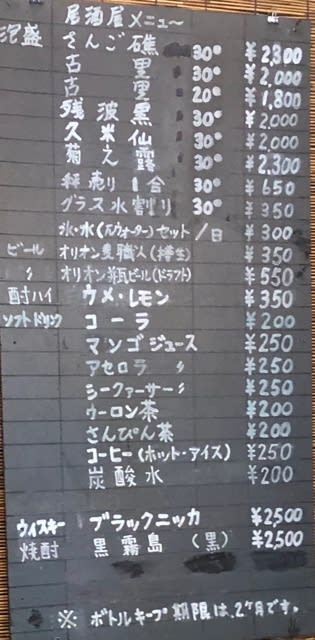 居酒屋メニュー
泡盛 さんご礁 30° ¥2,300
古里 30° ¥2,000
古里 20° ¥1,800
残波黒 30° ¥2,000
久米仙 30° ¥2,000
菊之露 30° ¥2,300
秤売り1合 30° ¥650
グラス水割り 30° ¥350
氷・水(ウォーター)セット/日 ¥300
ビール オリオン麦職人(樽生) ¥350
〃 オリオン瓶ビール(ドラフト) ¥550
酎ハイ ウメ・レモン ¥350
ソフトドリンク コーラ ¥200
マンゴジュース ¥250
アセロラ 〃 ¥250
シークァーサー〃 ¥250
ウーロン茶 ¥200
さんぴん茶 ¥200
コーヒー(ホット・アイス) ¥250
炭酸水 ¥200
ウィスキー ブラックニッカ ¥2,500
焼酎 黒霧島 (黒) ¥2,500
※ ボトルキープ期限は、2ヶ月です。